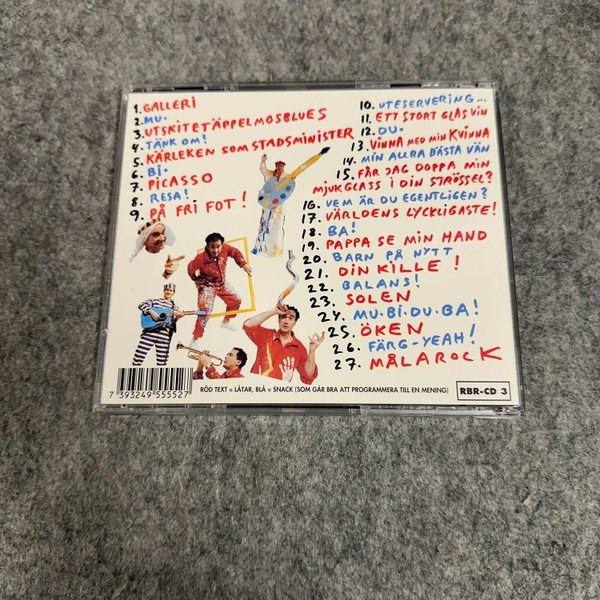 1. GALLERI
2. MU.
3. UTSKITETÄPPELMOSBLUES
4. TÄNK OM!
5. KÄRLEKEN SOM STADSMINISTER
6. BI.
7. PICASSO
8. RESA!
9. PÅ FRI FOT!
10. UTESERVERING...
11. ETT STORT GLAS VIN
12. DU.
13. VINNA MED MIN KVINNA
14. MIN ALLRA BÄSTA VÄN
15. FÅR JAG DOPPA MIN
MJUKGLASS I DIN STRÖSSEL?
16. VEM ÄR DU EGENTLIGEN?
17. VÄRLDENS LYCKLIGASTE!
18. BA!
19. PAPPA SE MIN HAND
20. BARN PÅ NYTT
21. DIN KILLE!
22. BALANS!
23. SOLEN
24. MU.BI.DU.BA!
25. ÖKEN
26. FÄRG-YEAH!
27. MÅLAROCK
7 393249 555527
RÖD TEXT = LÅTAR, BLÅ = SNACK (SOM GÅR BRA ATT PROGRAMMERA TILL EN MENING)
RBR-CD 3